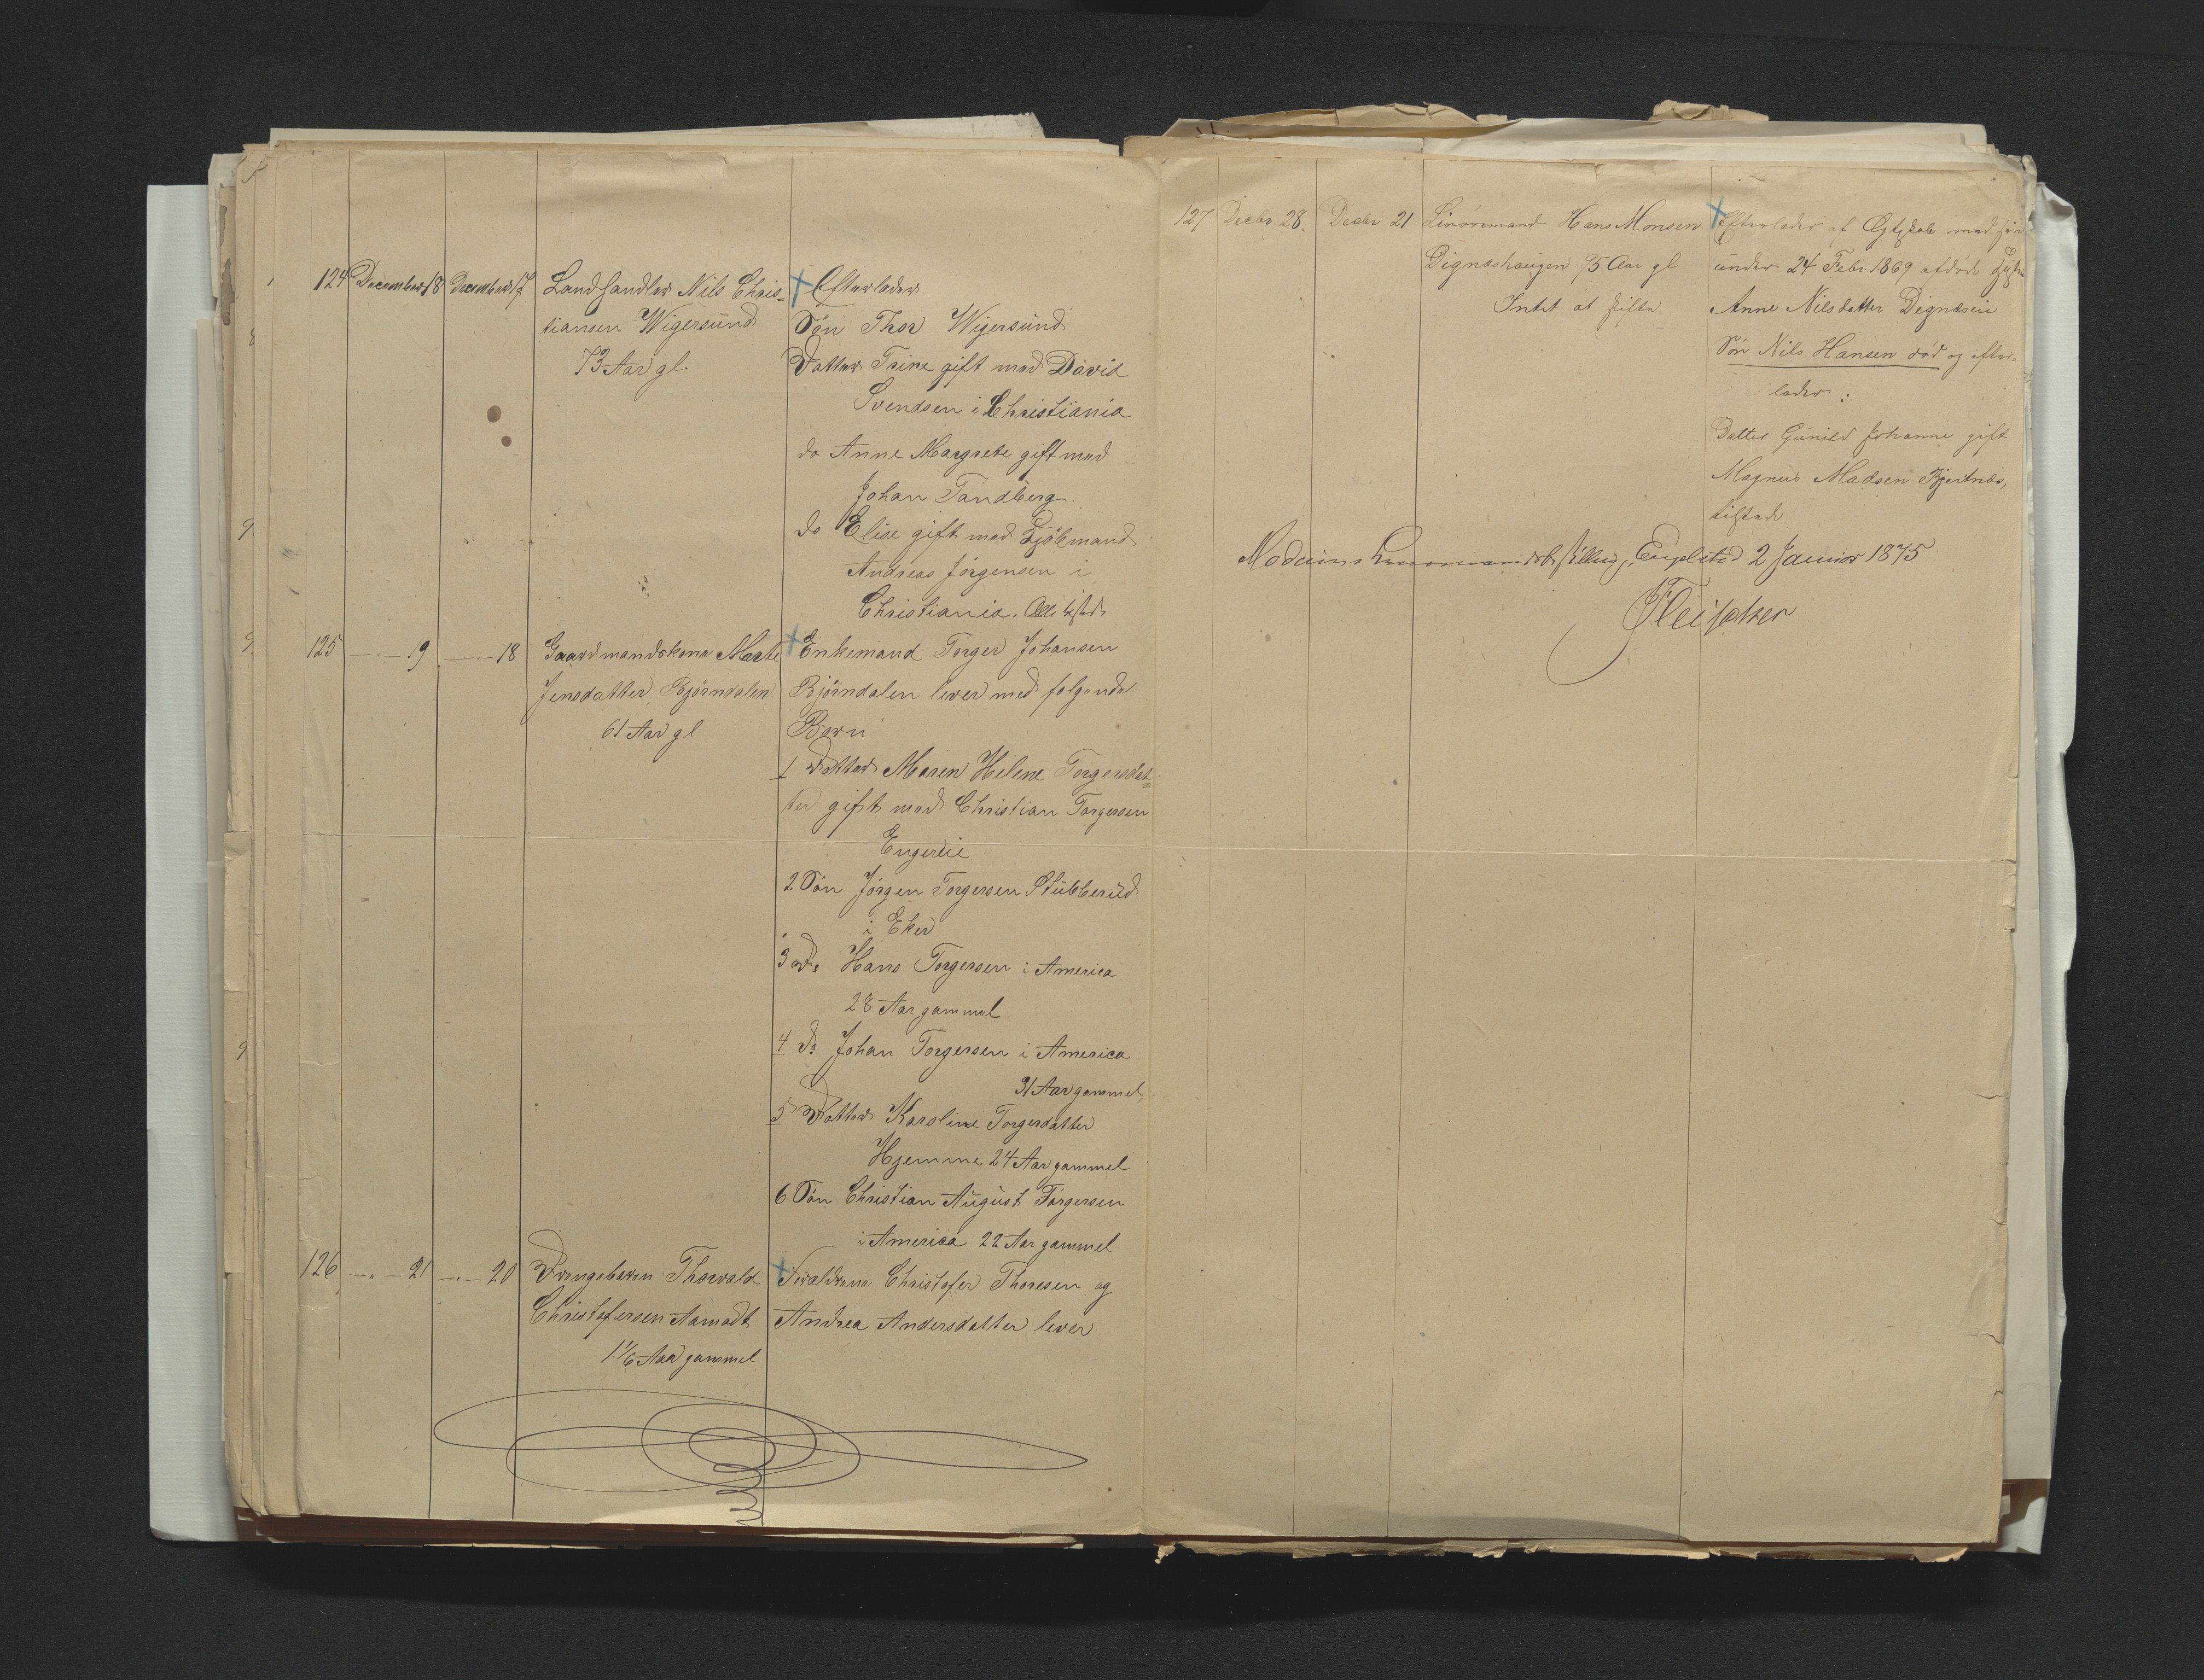 124 December 18 December 17 Landhandler Nils Chris-
tiansen Wigersund
73 Aar gl.
Efterlader
Søn Thor Wigersund
Datter Trine gift med David
Svendsen i Christiania
do Anne Margrete gift med
Johan Tandberg
do Elise gift med Kjøbmand
Andreas Jörgensen i
Christiania. Alle
125 — 19 — 18 Gaardmandskone Marte
Jensdatter Bjørndalen
61 Aar gl
Enkemand Torger Johansen
Bjørndalen lever med følgende
Børn
1 Datter Maren Helene Torgersdat=
ter gift med Christian Torgersen
Engereie
2 Søn Jörgen Torgersen Stubberud
i Eker
3 do Hans Torgersen i America
28 Aar gammel
4 do Johan Torgersen i America
31 Aar gammel
5 Datter Karoline Torgersdatter
Hjemme 24 Aar gammel
6 Søn Christian August Torgersen
i America 22 Aar gammel
126 — 21 — 20 Drengebarn Thorvald
Christofersen Aamodt
1 1/6 Aar gammel
Forældrene Christofer Thoresen og
Andrea Andersdatter lever
127 Decbr 28. Decbr 21 Hans Monsen
Dignæshaugen 75 Aar gl
Intet at skifte
Efterlader af Ægteskab med sin
under 24 Febr. 1869 afdøde Hustru
Anne Nilsdatter Dignæseie
Søn Nils Hansen død og efter-
lader:
Datter Gunild Johanne gift
Magnus Madsen
tilstede
Modums Lensmandsbestilling, Engelstad 2 Januar 1875
Fleischer